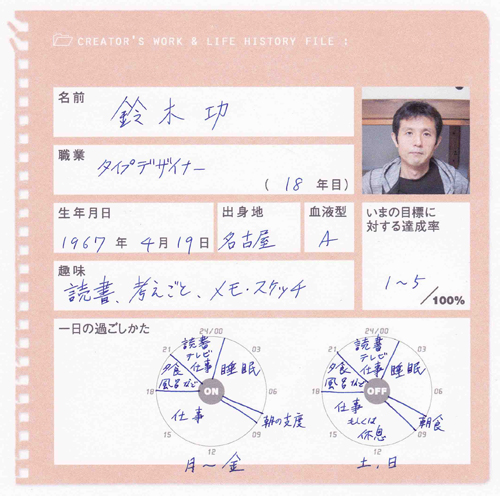 CREATOR'S WORK & LIFE HISTORY FILE :
名前
鈴木 功
職業
タイプデザイナー
( 18 年目)
生年月日
1967 年 4月19日
出身地
名古屋
血液型
A
いまの目標に
対する達成率
1〜5
/100%
趣味
読書、考えごと、メモ・スケッチ
一日の過ごしかた
24/00
03
06
09
12
15
18
21
読書
テレビ
仕事
睡眠
朝の支度
仕事
夕食
風呂など
ON
月〜金
24/00
03
06
09
12
15
18
21
読書
テレビ
仕事
睡眠
朝食
仕事
もしくは
休息
夕食
風呂など
OFF
土,日